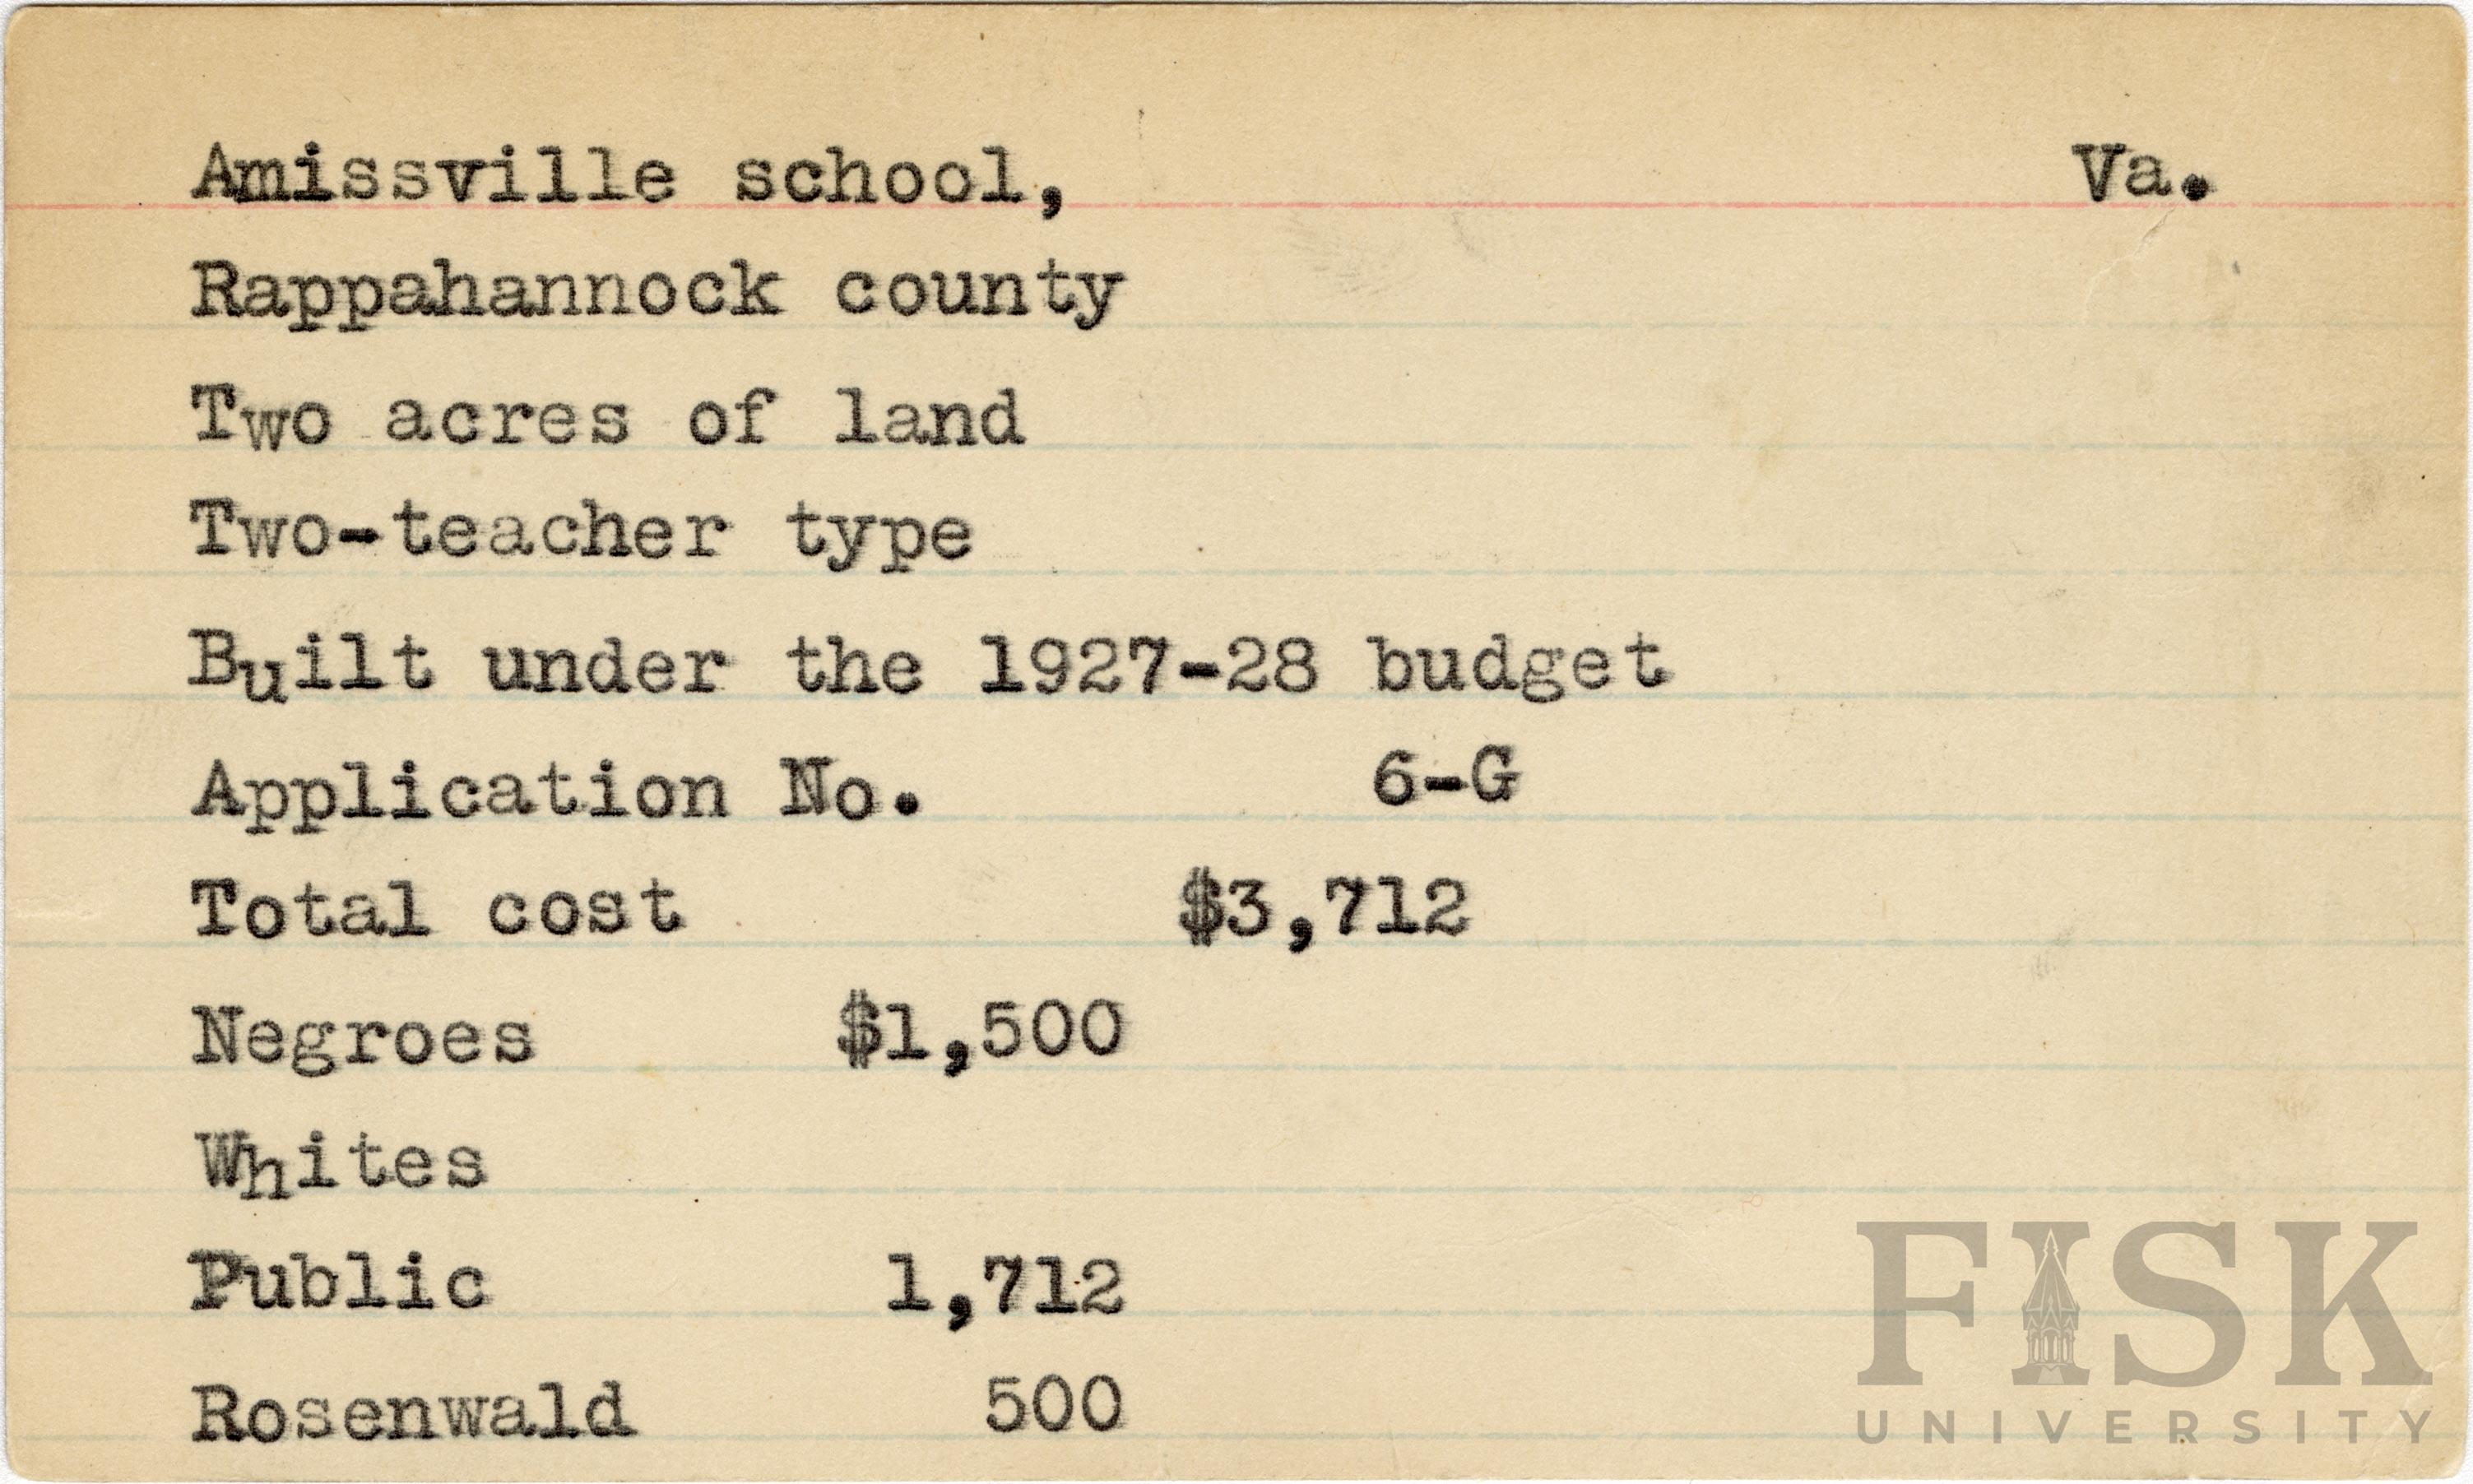 Amissville school, Va.
Rappahannock county
Two acres of land
Two-teacher type
Built under the 1927-28 budget
Application No. 6-G
Total cost $3,712
Negroes $1,500
Whites
Public 1,712
Rosenwald 500
FISK
UNIVERSITY